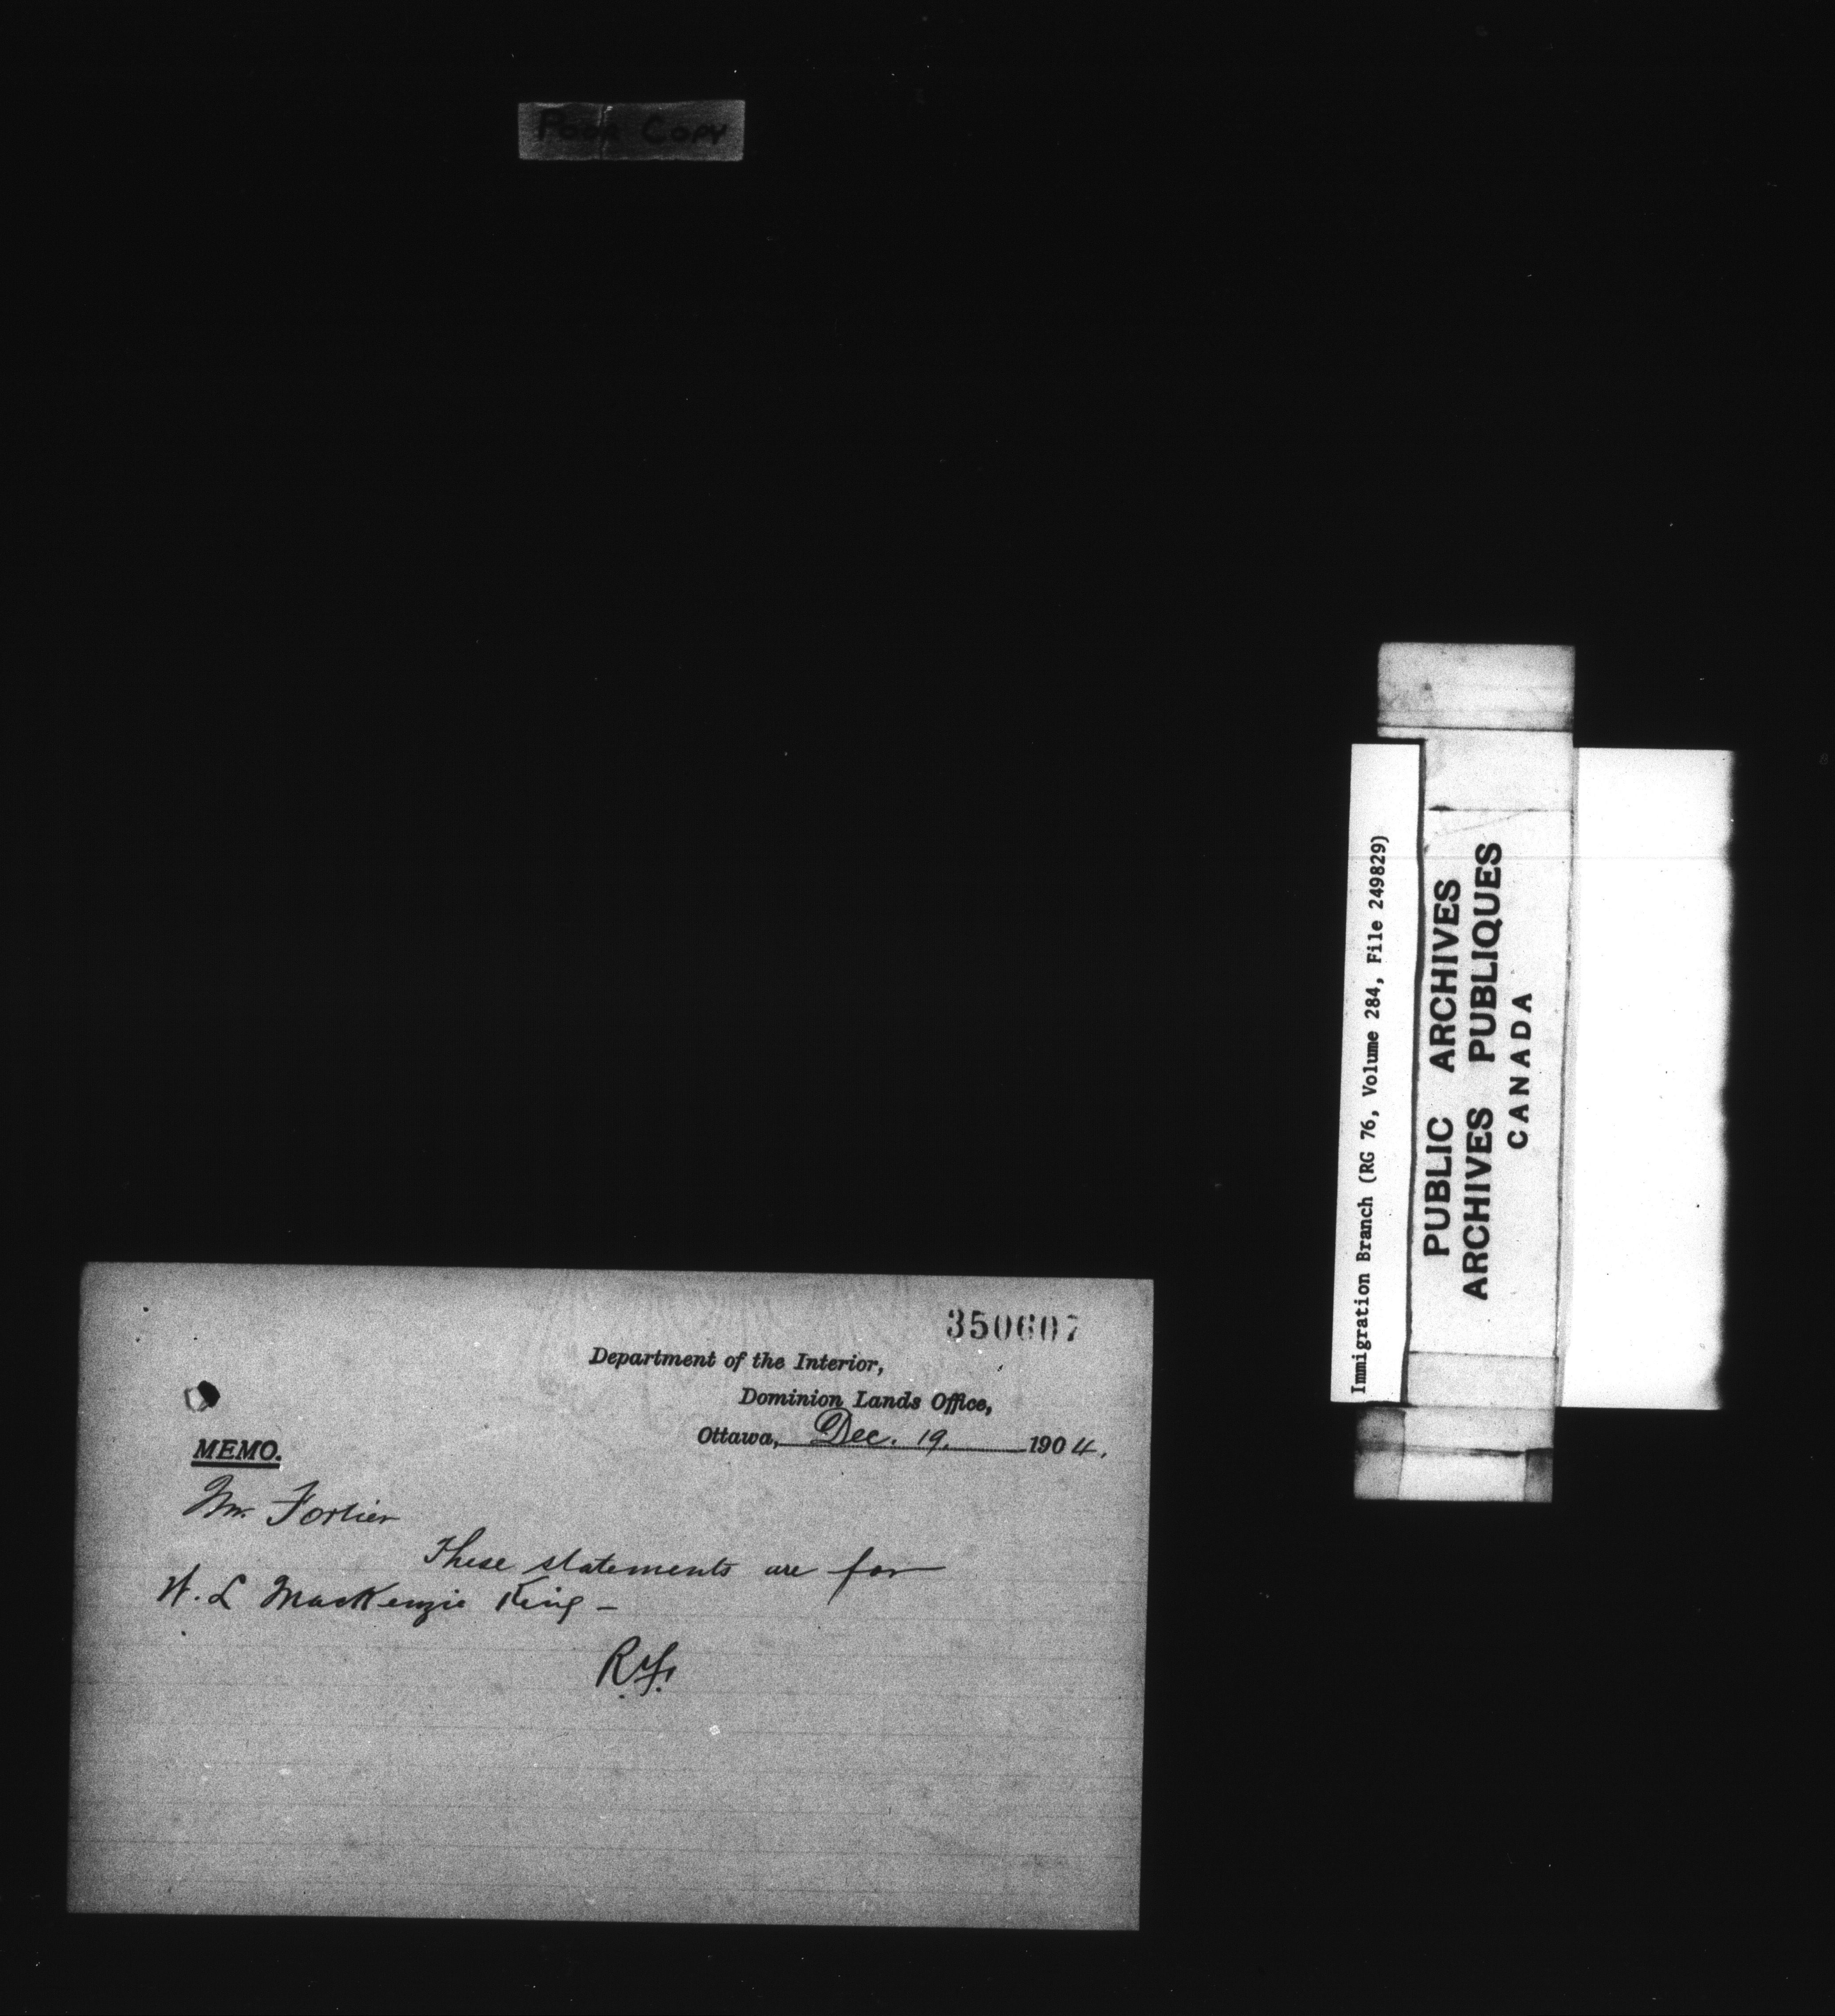 Poor Copy
Immigration Branch (RG 76, Volume 284, File 249829)
PUBLIC ARCHIVES
ARCHIVES PUBLIQUES
CANADA
350607
Department of the Interior,
Dominion Lands Office,
Ottawa, Dec. 19. 1904.
MEMO.
Mr. Fortier
These statements are for
W. L MacKenzie King –